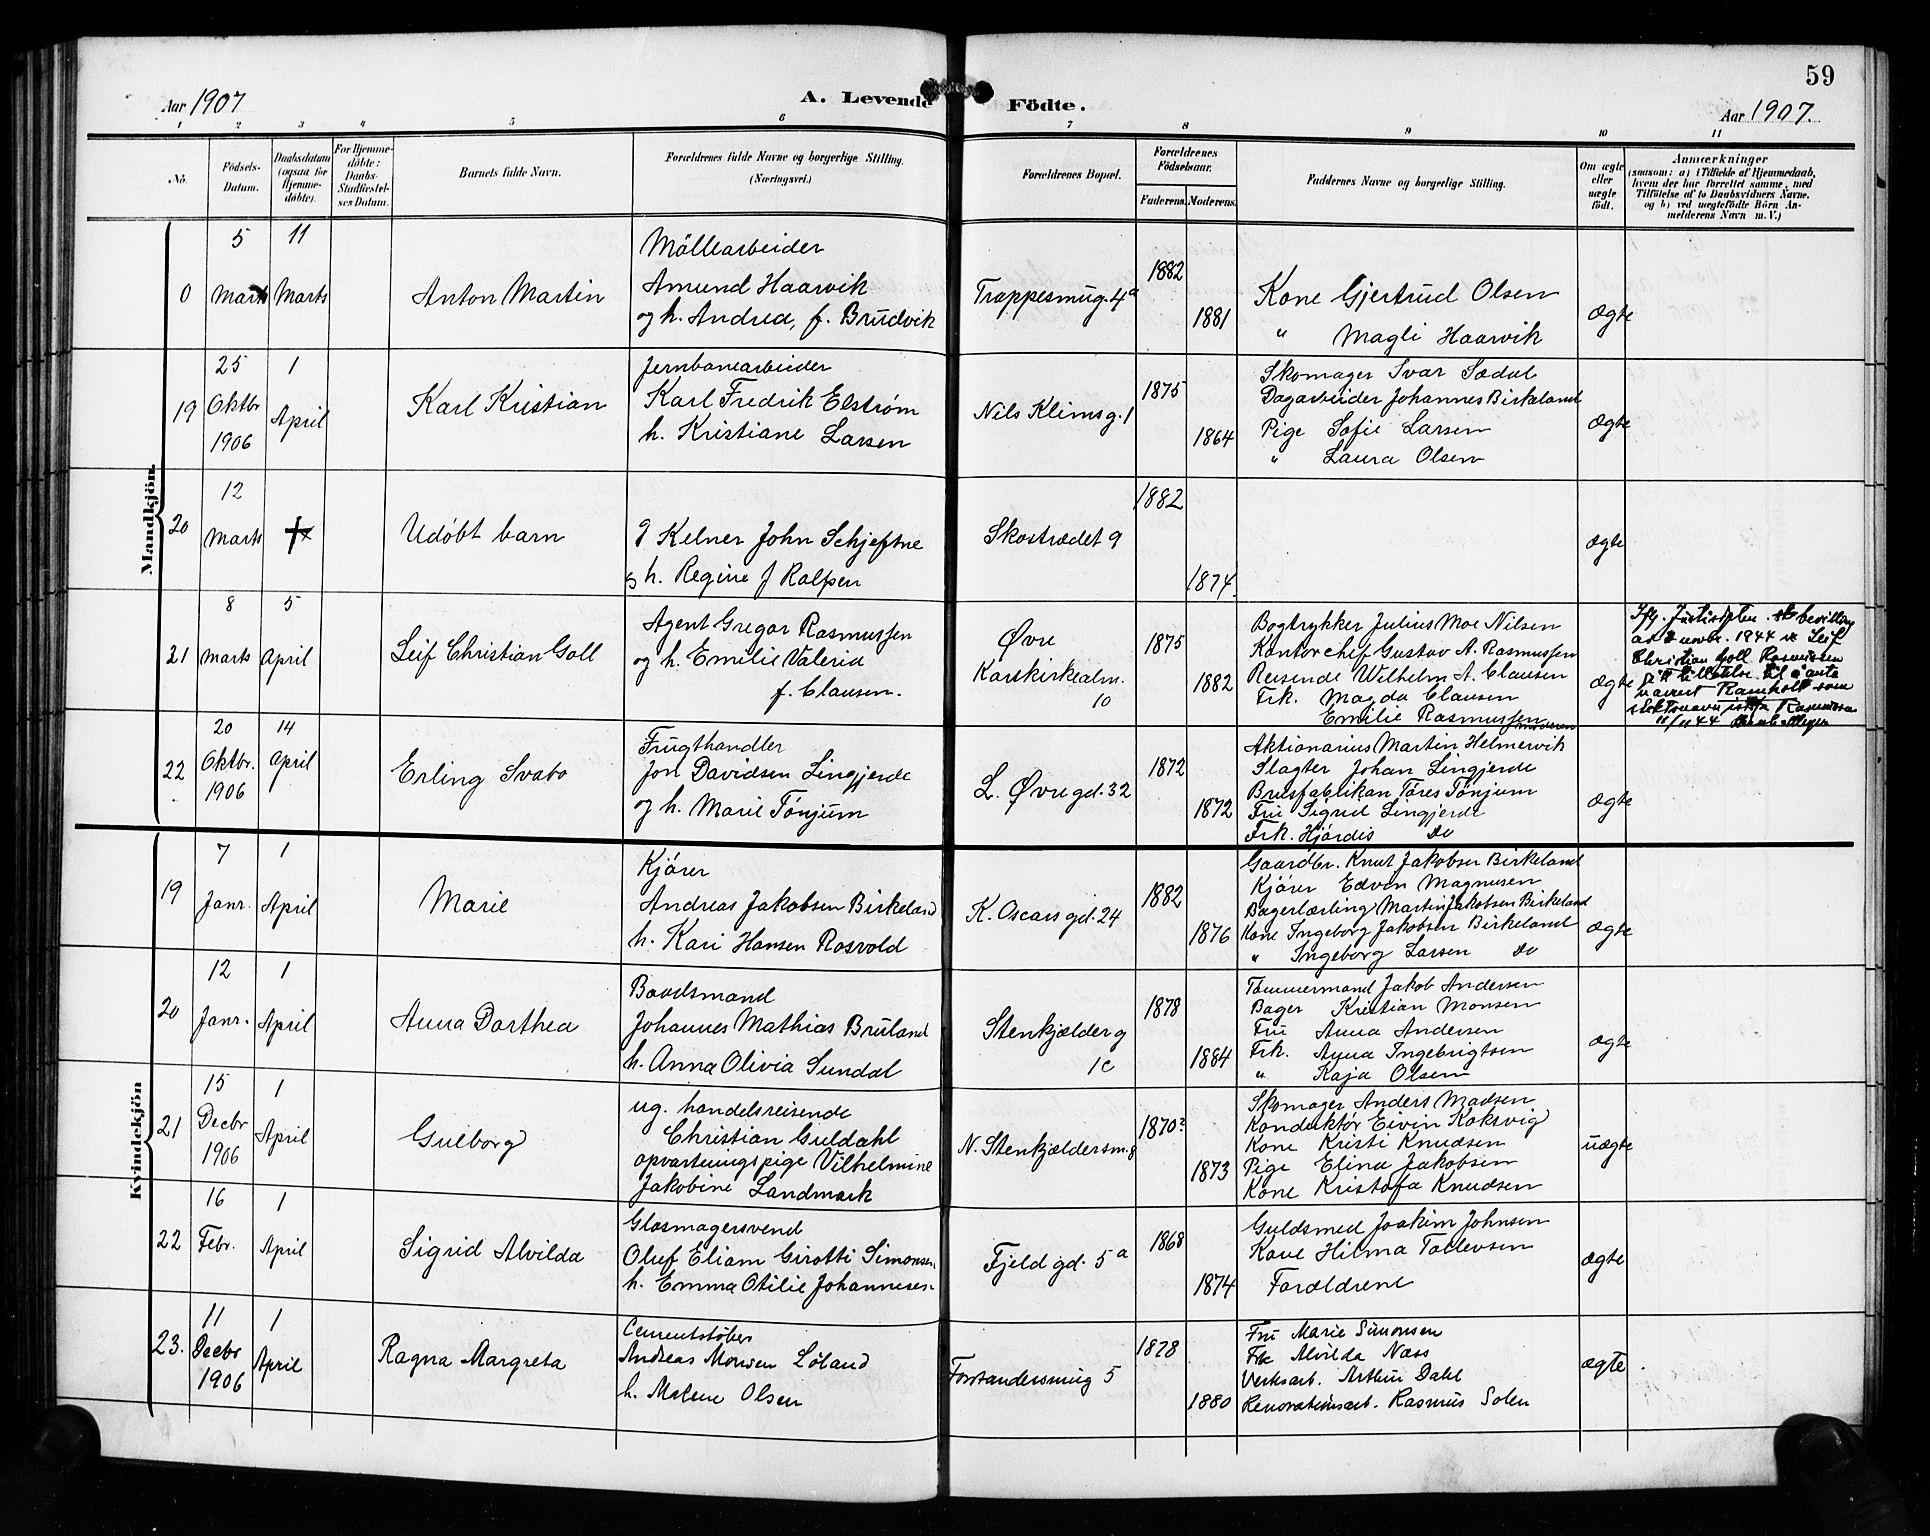 59
Aar 1907
A. Levende Födte.
Aar 1907.
1 2 3 4 5 6 7 8 9 10 11
No.
Födsels-
Datum.
Daabsdatum
(ogsaa for
Hjemme-
döbte).
For Hjemme-
döbte:
Daabs-
Stadfæstel-
ses Datum.
Barnets fulde Navn.
Forældrenes fulde Navne og borgerlige Stilling.
(Næringsvei.)
Forældrenes Bopæl.
Forældrenes
Födselsaar.
Faderens. Moderens.
Faddernes Navne og borgerlige Stilling.
Om ægte
eller
uægte
födt.
Anmærkninger
(saasom: a) i Tilfælde af Hjemmedaab,
hvem der har forrettet samme, med
Tilföielse af to Daabsvidners Navne.
og b) ved uægtefödte Börn An-
melderens Navn m. V.)
Mandkjön.
0
5
Marts
11
Marts
Anton Martin
Möllearbeider
Amund Haarvik
og h. Andrea, f. Brudvik
Trappesmug. 4a
1882
1881
Kone Gjertrud Olsen
" Magli Haarvik
ægte
19
25
Oktbr
1906
1
April
Karl Kristian
Jernbanearbeider
Karl Fredrik Elstrøm
h. Kristiane Larsen
Nils Klimsg. 1
1875
1864
Skomager Ivar Sædal
Dagarbeider Johannes Birkeland
Pige Sofie Larsen
" Laura Olsen
ægte
20
12
Marts
Udøbt barn
Kelner John Schjeftne
h. Regine f Ralfsen
Skostrædet 9
1882
1874.
ægte
21
8
Marts
5
April
Leif Christian Goll
Agent Gregar Rasmussen
og h. Emilie Valeria
f. Clausen.
Øvre
Korskirkealm.
10
1875
1882
Bogtrykker Julius Moe Nilsen
Kontorchef Gustav A. Rasmussen
Reisende Wilhelm A. Clausen
Frk. Magda Clausen
Emilie Rasmussen
ægte
Ifg. Justisdptm. bevilling
av 2 novbr. 1944 Leif
Christian Goll Rasmussen
tillatelse til å anta
navnet Ramholt som
slektsnavn istfr Rasmussen
11/11 44
22
20
Oktbr.
1906
14
April
Erling Svabo
Frugthandler
Jon Davidsen Lingjerde
og h. Marie Tönjum
L. Øvregd. 32
1872
1872
Aktionarius Martin Helmervik
Slagter Johan Lingjerde
Brusfabrikan Tøres Tönjum
Fru Sigrid Lingjerde
Frk. Hjördis Do
ægte
Kvindekjön
19
7
Janr.
1
April
Marie
Kjörer
Andreas Jakobsen Birkeland
h. Kari Hansen Rosvold
K. Oscars gd. 24
1882
1876
Gaardbr. Knut Jakobsen Birkeland
Kjörer Edvin Magnusen
Bagerlærling Martin Jakobsen Birkeland
Kone Ingeborg Jakobsen Birkeland
" Ingeborg Larsen Do
ægte
20
12
Janr.
1
April
Anna Dorthea
Baadsmand
Johannes Mathias Bruland
h. Anna Olivia Sundal
Stenkjælderg
1c
1878
1884
Tømmermand Jakob Andersen
Bager Kristian Monsen
Fru Anna Andersen
Frk. Anna Ingebrigtsen
" Kaja Olsen
ægte
21
15
Decbr
1906
1
April
Gulborg
ug. handelsreisende
Christian Guldahl
opvartningspige Vilhelmine
Jakobine Landmark
N. Stenkjældersm. 8
1870?
1873
Skomager Anders Madsen
Konduktör Eivin Koksvig
Kone Kristi Knudsen
Pige Elina Jakobsen
Kone Kristofa Knudsen
uægte
22
16
Febr.
1
April
Sigrid Alvilda
Glasmagersvend
Oluf Eliam Girotti Simonsen
h. Emma Otilie Johannesen
Fjeld gd. 5a
1868
1874
Guldsmed Joakim Johnsen
Kone Hilma Tollevsen
Forældrene
ægte
23.
11
Decbr
1906
1
April
Ragna Margreta
Cementstøber
Andreas Monsen Løland
h. Malene Olsen
Forstandersmug 5
1878
1880
Fru Marie Simonsen
Frk Alvilda Næss
Verksarb. Arthur Dahl
Renovationsarb. Rasmus Solen
ægte